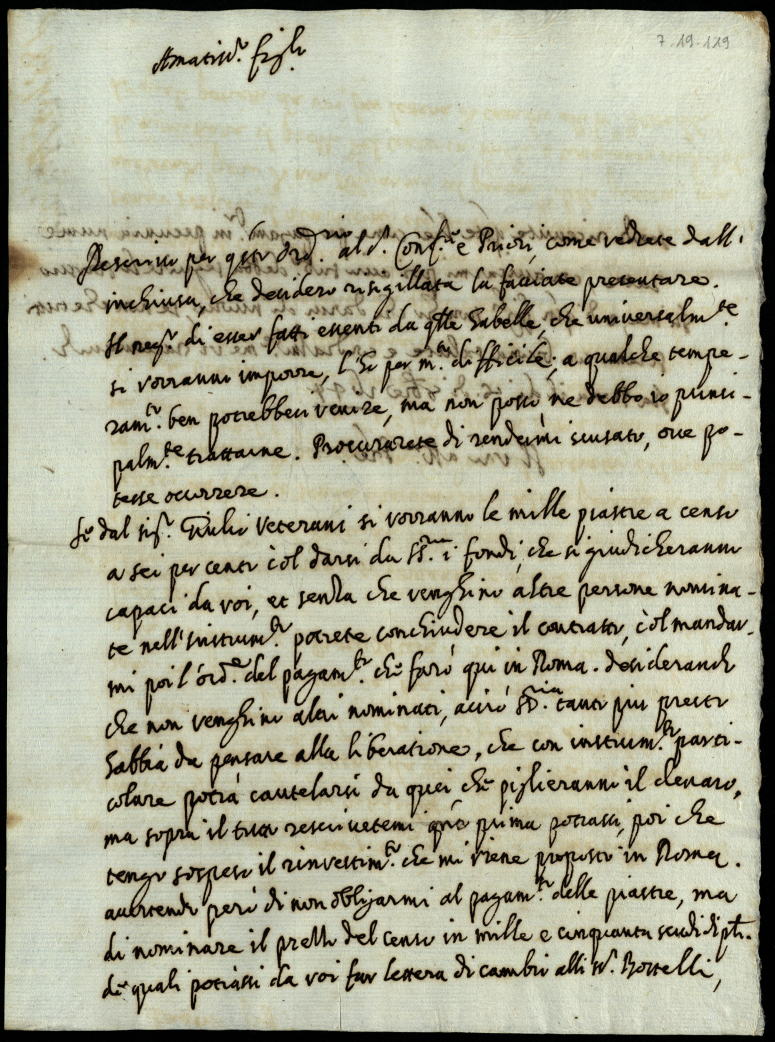 7-19-119
Amatis.mi figli
Rescrivo per q.sto ord.rio al S. Conf.re e Priori, come vedrete dall'
inchiusa, che desidero risigillata la facciate presentare.
Il neg.o di esser fatti esenti da q.lle Gabelle, che universalm.te
si vorranno imporre, l'hò per m.to difficile; a qualche tempe-
ram.to ben potrebbesi venire, ma non posso, ne debbo io princi-
palm.te trattarne. Procurarete di rendermi scusato, ove po-
tesse occorrere.
Se dal Sig.r Giulio Veterani si vorranno le mille piastre a censo
a sei per cento col darsi da S.S.ria i fondi, che si giudicheranno
capaci da voi, et senza che venghino altre persone nomina-
te nell'Instrum.to potrete conchiudere il contratto, col mandar-
mi poi l'ord.e del pagam.to che farò quì in Roma. Desiderando
che non venghino altri nominati, acciò S.S.ria tanto più presto
habbia da pensare alla liberatione, che con instrum.to parti-
colare potrà cautelarsi da quei che piglieranno il denaro,
ma sopra il tutto rescrivetemi q.to prima potrassi, poi che
tengo sospeso il rinvestim.to che mi viene proposto in Roma.
avertendo però di non obligarmi al pagam.to delle piastre, ma
di nominare il prezzo del censo in mille e cinquanta scudi di p.li
de quali potrassi da voi far lettera di cambio alli SS.ri Bottelli,